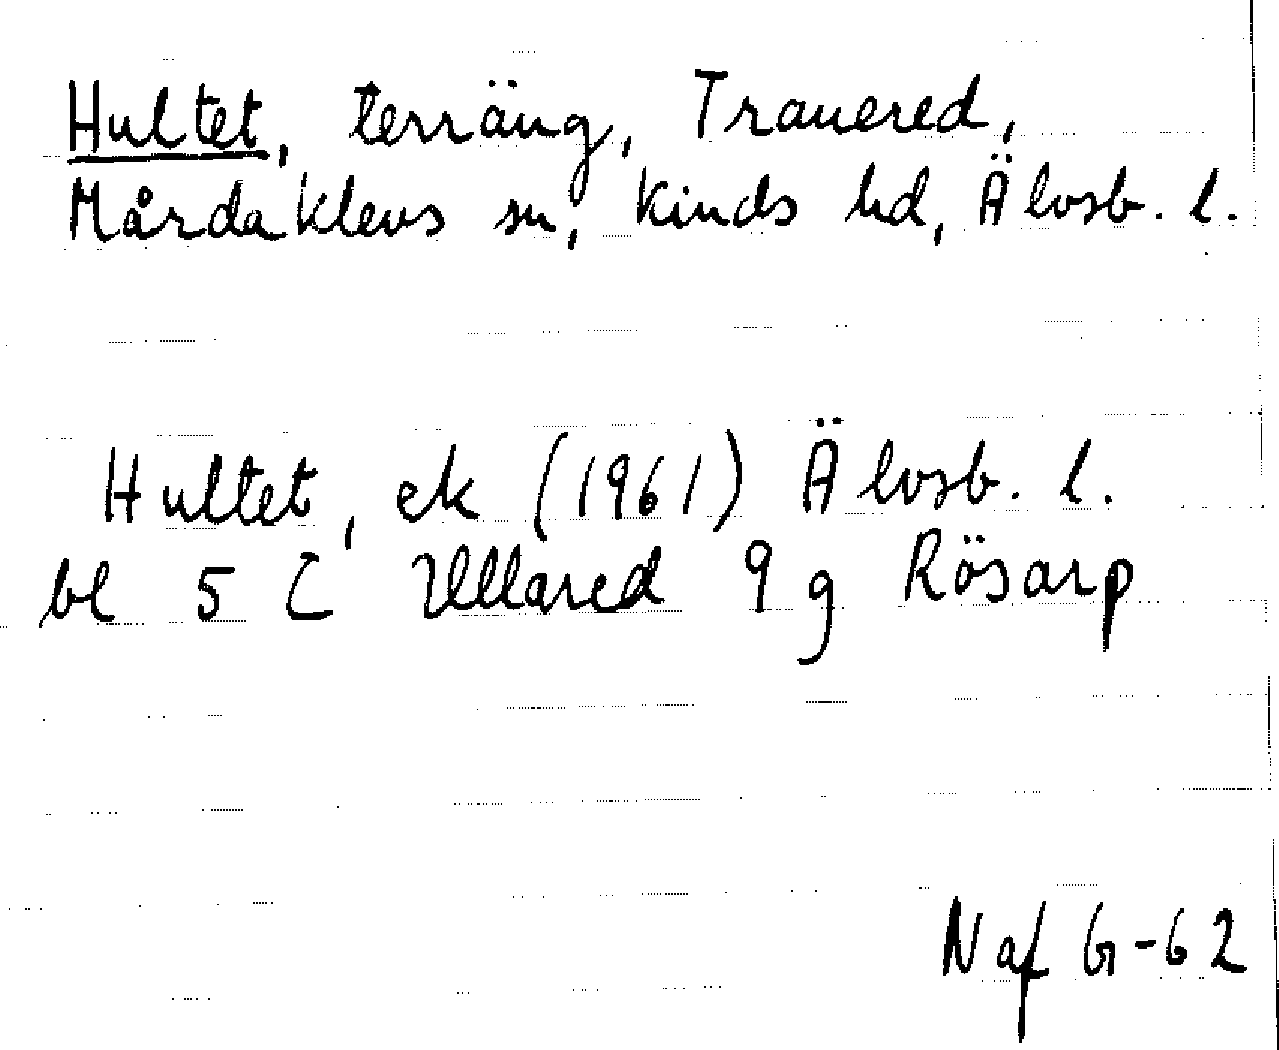 Hultet, terräng, Tranered,
Mårdaklevs sn, Kinds hd, Älvsb. l.
Hultet, ek (1961) Älvsb. l.
bl 5 C Ullared 9 g Rösarp
Naf G-62